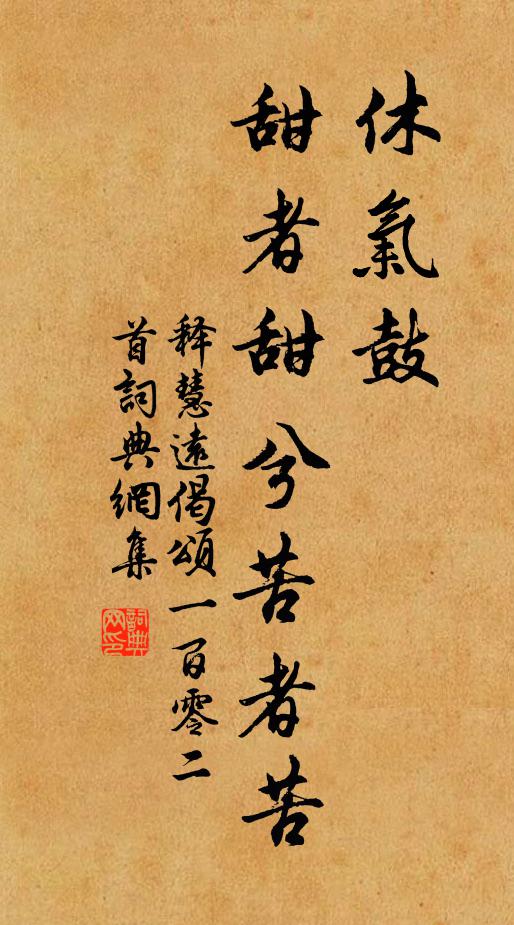 休氣鼓
甜者甜兮苦者苦
释慧遠偈頌一百零二
首詞典網集
詞典
网印